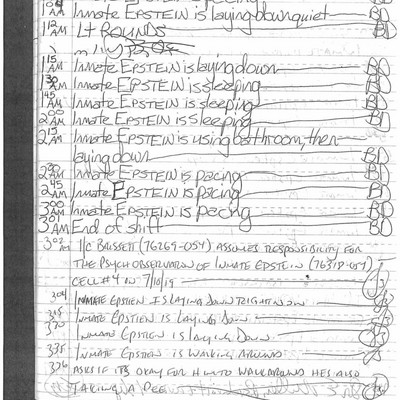 Inmate EPSTEIN is laying down quiet BD
1 12 AM Lt ROUNDS BD
1 15 AM Inmate EPSTEIN is laying down BD
1 30 AM Inmate EPSTEIN is sleeping BD
1 45 AM Inmate EPSTEIN is sleeping BD
2 00 AM Inmate EPSTEIN is sleeping BD
2 15 AM Inmate EPSTEIN is using bathroom, then
laying down BD
2 30 AM Inmate EPSTEIN is pacing BD
2 45 AM Inmate EPSTEIN is pacing BD
3 00 AM Inmate EPSTEIN is pacing BD
3 01 AM End of shift BD
302 I/C BRISSETT (76269-054) ASSUMES RESPONSIBILITY FOR
THE PSYCH OBSERVATION OF INMATE EPSTEIN (76318-054)
CELL #4 IN 7/10/19
304 INMATE EPSTIEN IS LAYING DOWN RIGHT NOW
315 INMATE EPSTIEN IS LAYING DOWN
INMATE EPSTEIN IS LAYING DOWN
335 INMATE EPSTEIN IS WALKING AROUND
336 ASKS IF ITS OKAY FOR HIM TO WALK AROUND HES ALSO
TAKING A PEE